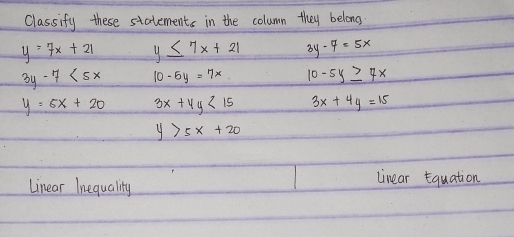 Classify these statements in the column they belong.
y = 7x + 21 y ≤ 7x + 21 3y - 7 = 5x
3y - 7 < 5x 10 - 5y = 7x 10 - 5y ≥ 7x
y = 5x + 20 3x + 4y < 15 3x + 4y = 15
y > 5x + 20
Linear Inequality | Linear Equation